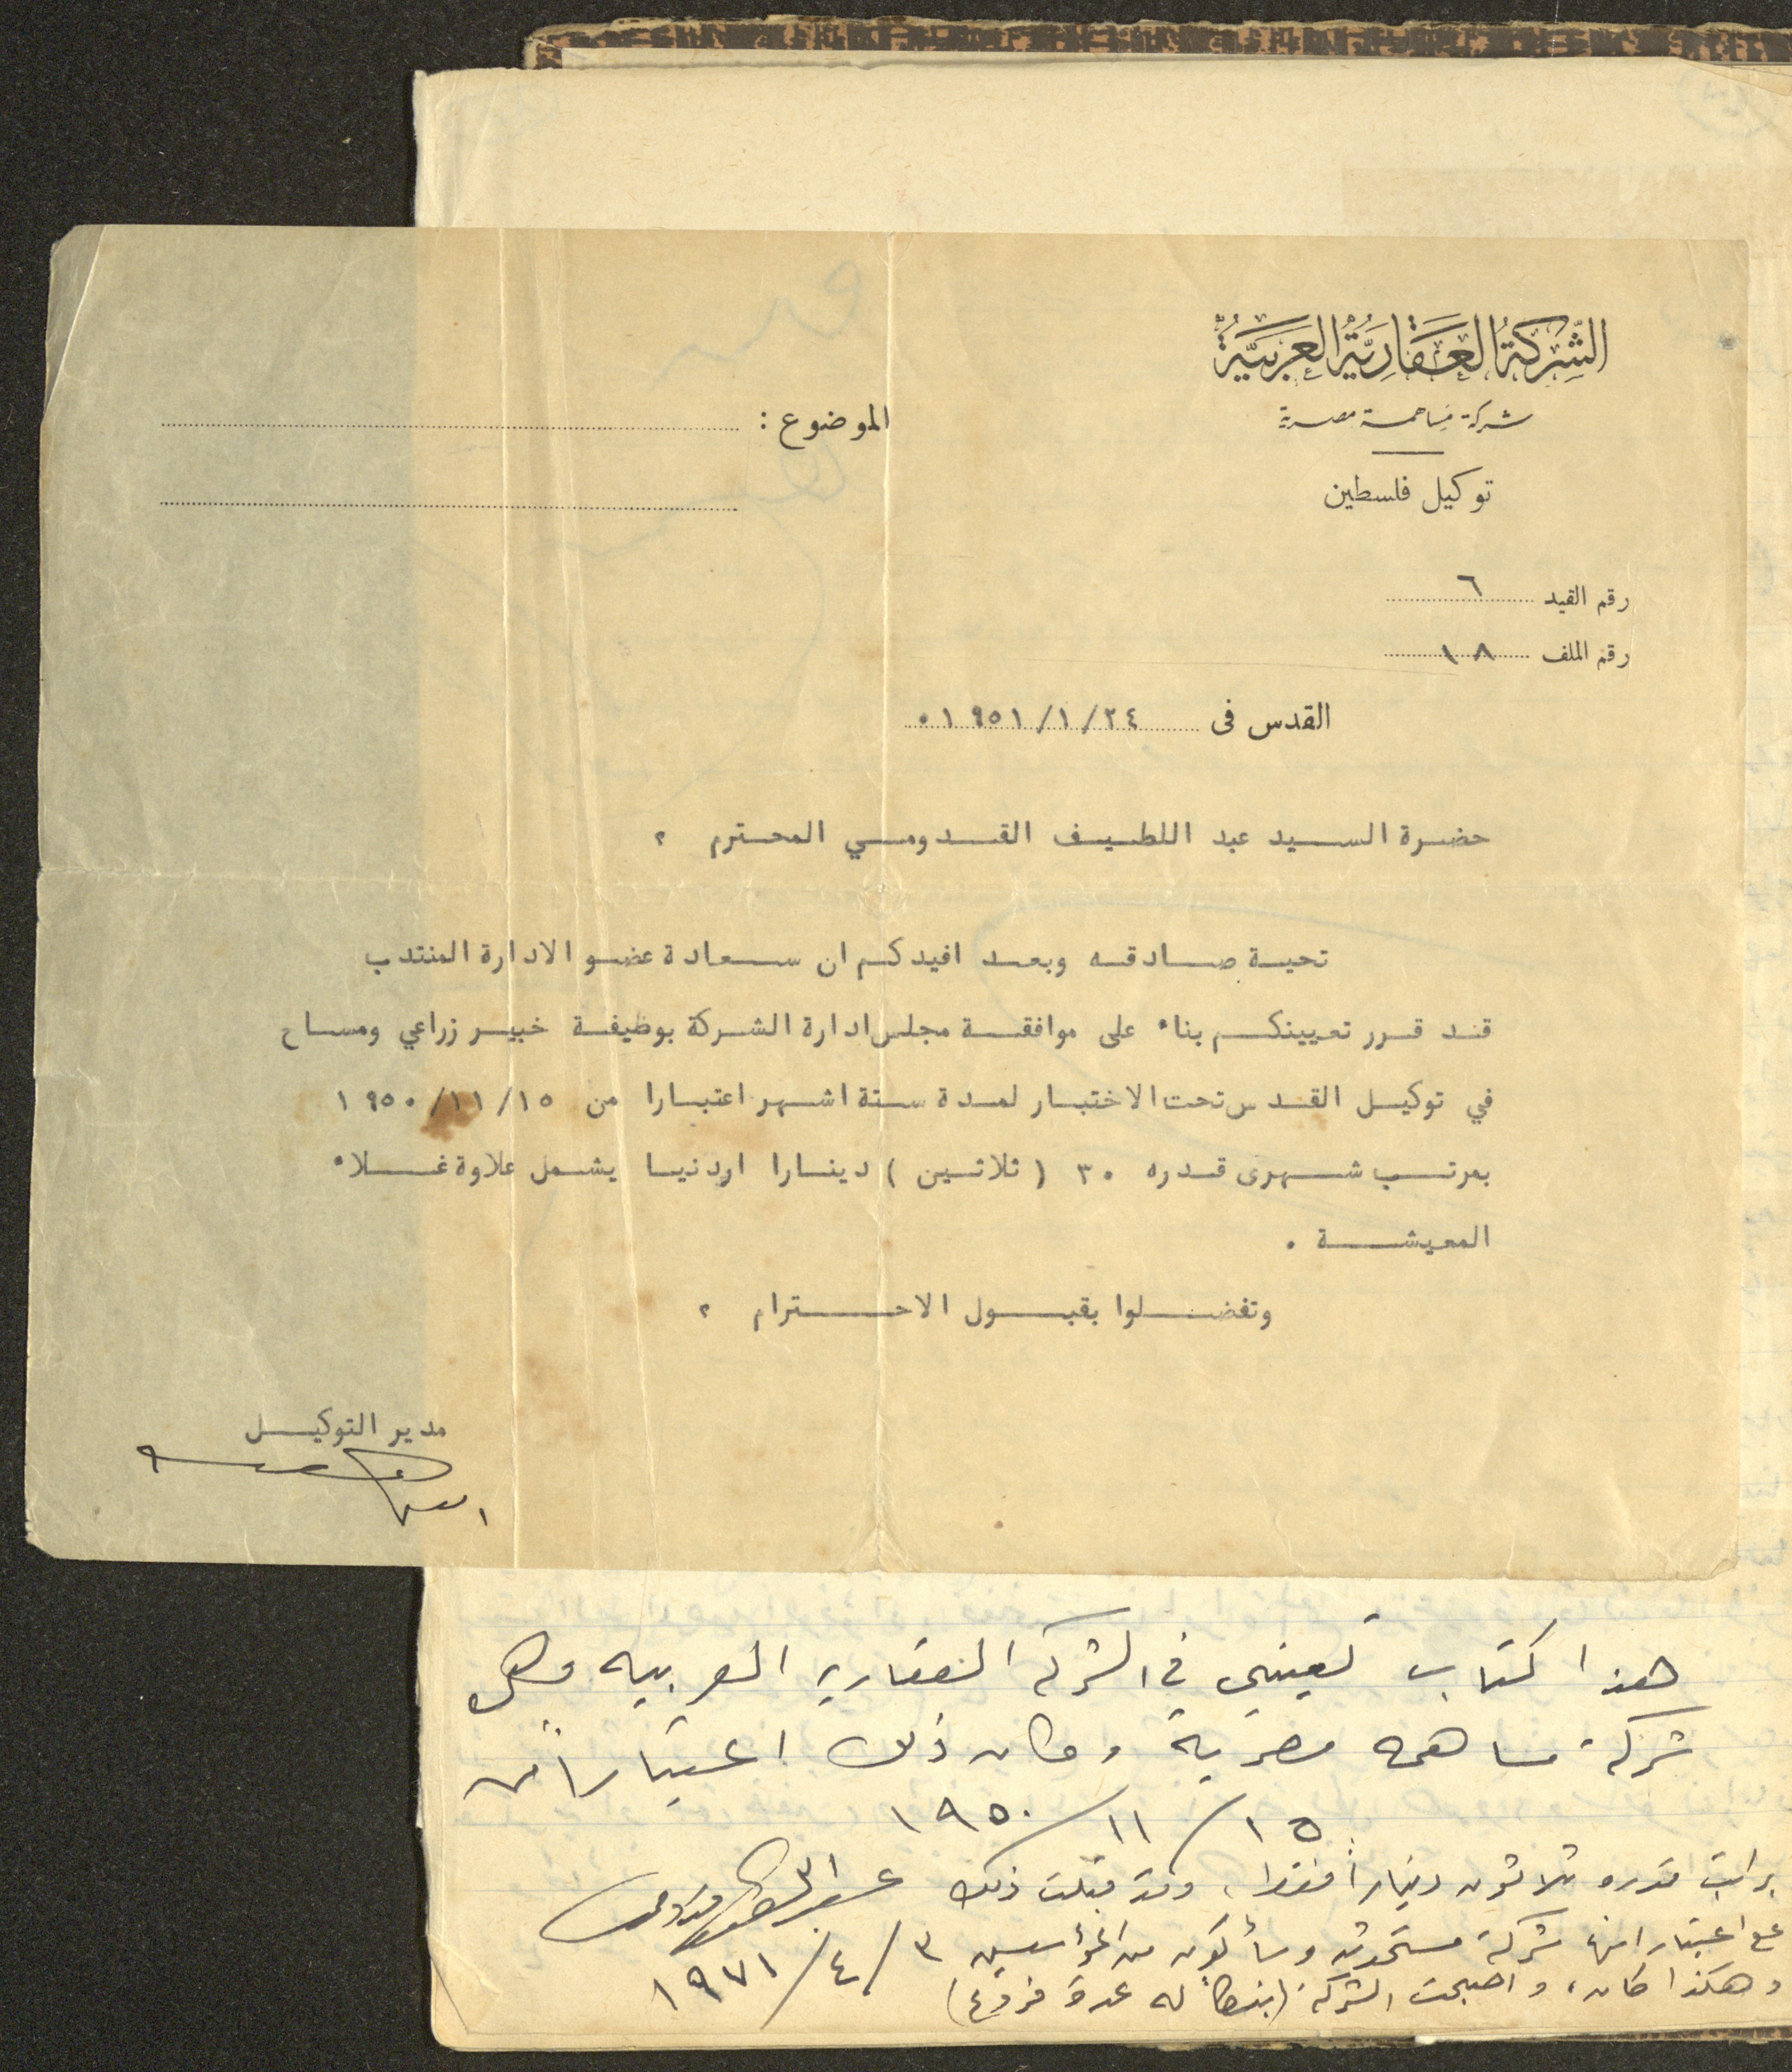 الشركة العقارية العربية
شركة مساهمة مصرية
توكيل فلسطين
الموضوع :
رقم القيد ٦
رقم الملف ١٨
القدس فى ٢٤/ ١/ ١٩٥١.
حضرة السيد عبد اللطيف القدومي المحترم ،
تحية صادقه وبعد افيدكم ان سعادة عضو الادارة المنتدب
قد قرر تعيينكم بناء على موافقة مجلس ادارة الشركة بوظيفة خبير زراعي ومساح
في توكيل القدس تحت الاختبار لمدة ستة اشهر اعتبارا من ١٥/ ١١/ ١٩٥٠
بمرتب شهرى قدره ٣٠ ( ثلاثين ) دينارا اردنيا يشمل علاوة غلاء
المعيشة .
وتفضلوا بقبول الاحترام ،
مدير التوكيل
هذا كتاب تعييني في الشركه العقاريه العربيه وهي
شركة مساهمه مصرية وكان ذلك اعتباراً من
١٥/ ١١/ ١٩٥٠
براتب قدره ثلاثون ديناراً فقط، وقد قبلت ذلك عبد اللطيف قدومي
على اعتبار انها شركة مستحدثه وسأكون من المؤسسين ٣/ ٤/ ١٩٧١
وهكذا كان، واصبحت الشركة (بنكاً له عدة فروع)